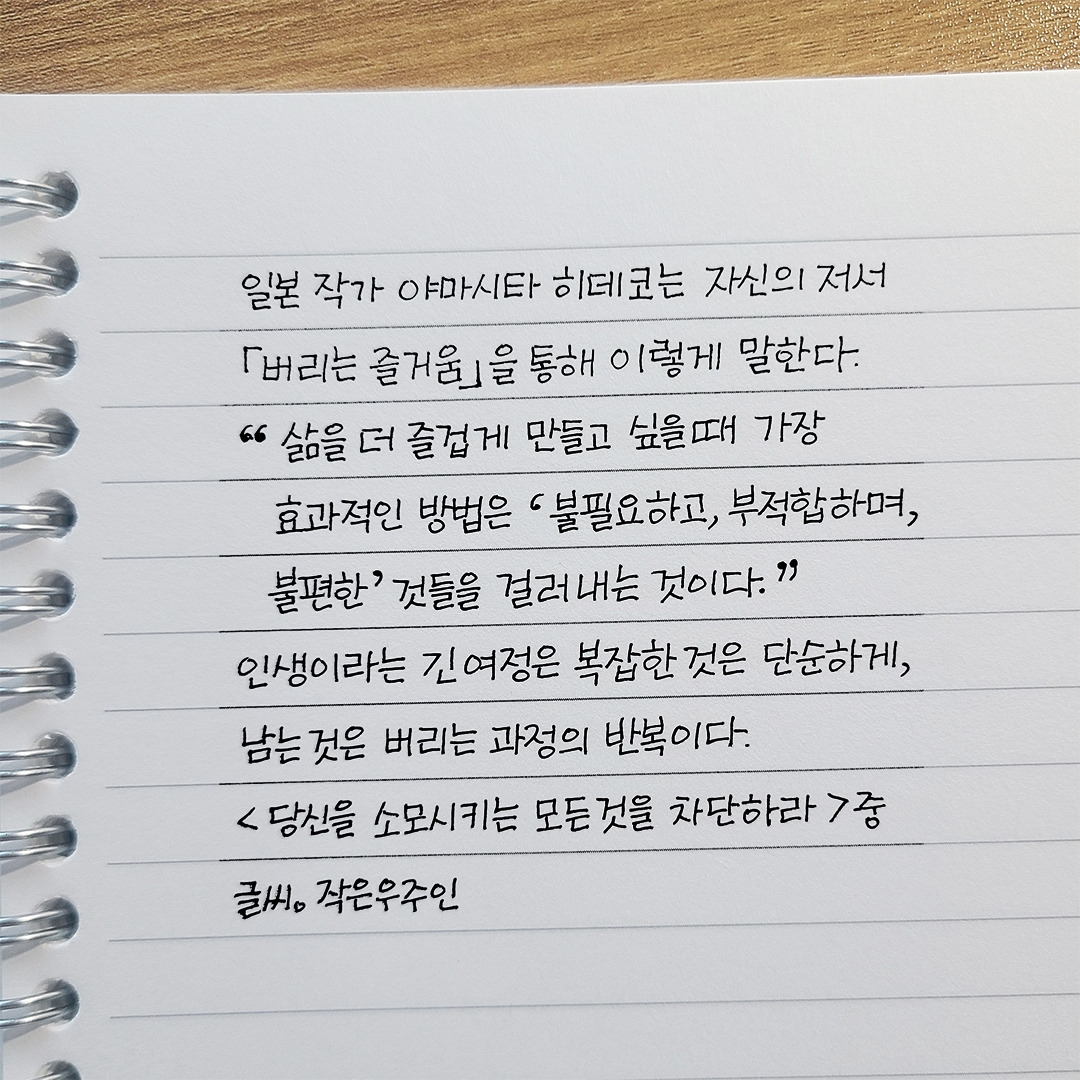 일본 작가 야마시타 히데코는 자신의 저서
「버리는 즐거움」을 통해 이렇게 말한다.
“ 삶을 더 즐겁게 만들고 싶을때 가장
효과적인 방법은 ‘불필요하고, 부적합하며,
불편한’ 것들을 걸러내는 것이다.”
인생이라는 긴 여정은 복잡한 것은 단순하게,
남는것은 버리는 과정의 반복이다.
< 당신을 소모시키는 모든것을 차단하라 > 중
글씨。작은우주인